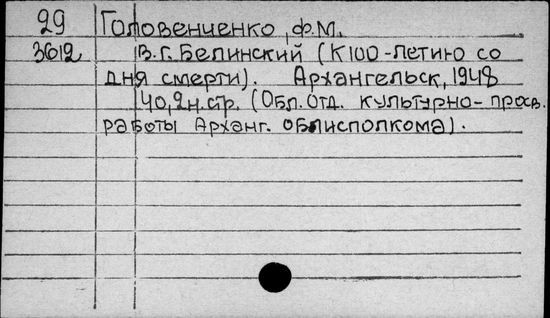 29 Головенченко, Ф.М.
3612 В.Г. Белинский (К 100-летию со
дня смерти). Архангельск, 1948
40, 2 н. стр. (Обл. отд. культурно-просв.
работы Арханг. облисполкома).